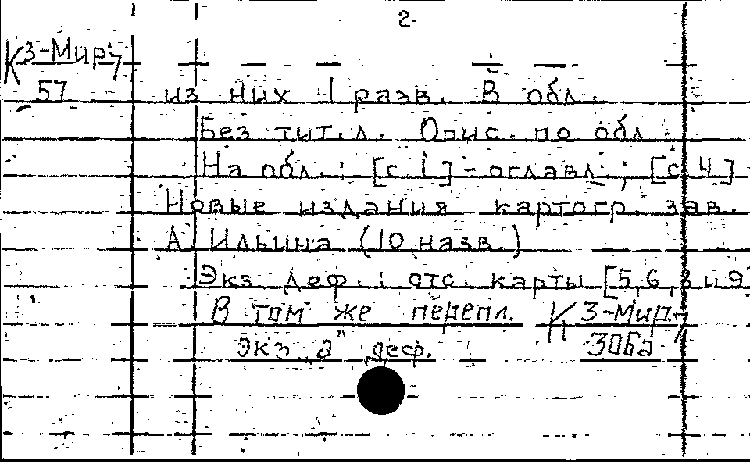 2.
К 3-Мир,
57
из них 1 разв. В обл.
Без тит. л. Опис. по обл
На обл.: [с. 1] - оглавл.; [с. 4]
Новые издания картогр. зав.
А. Ильина (10 назв.)
Экз. деф.: отс. карты [5, 6, 8 и 9
В том же перепл. К 3-Мир,
Экз. "а" деф. 306а